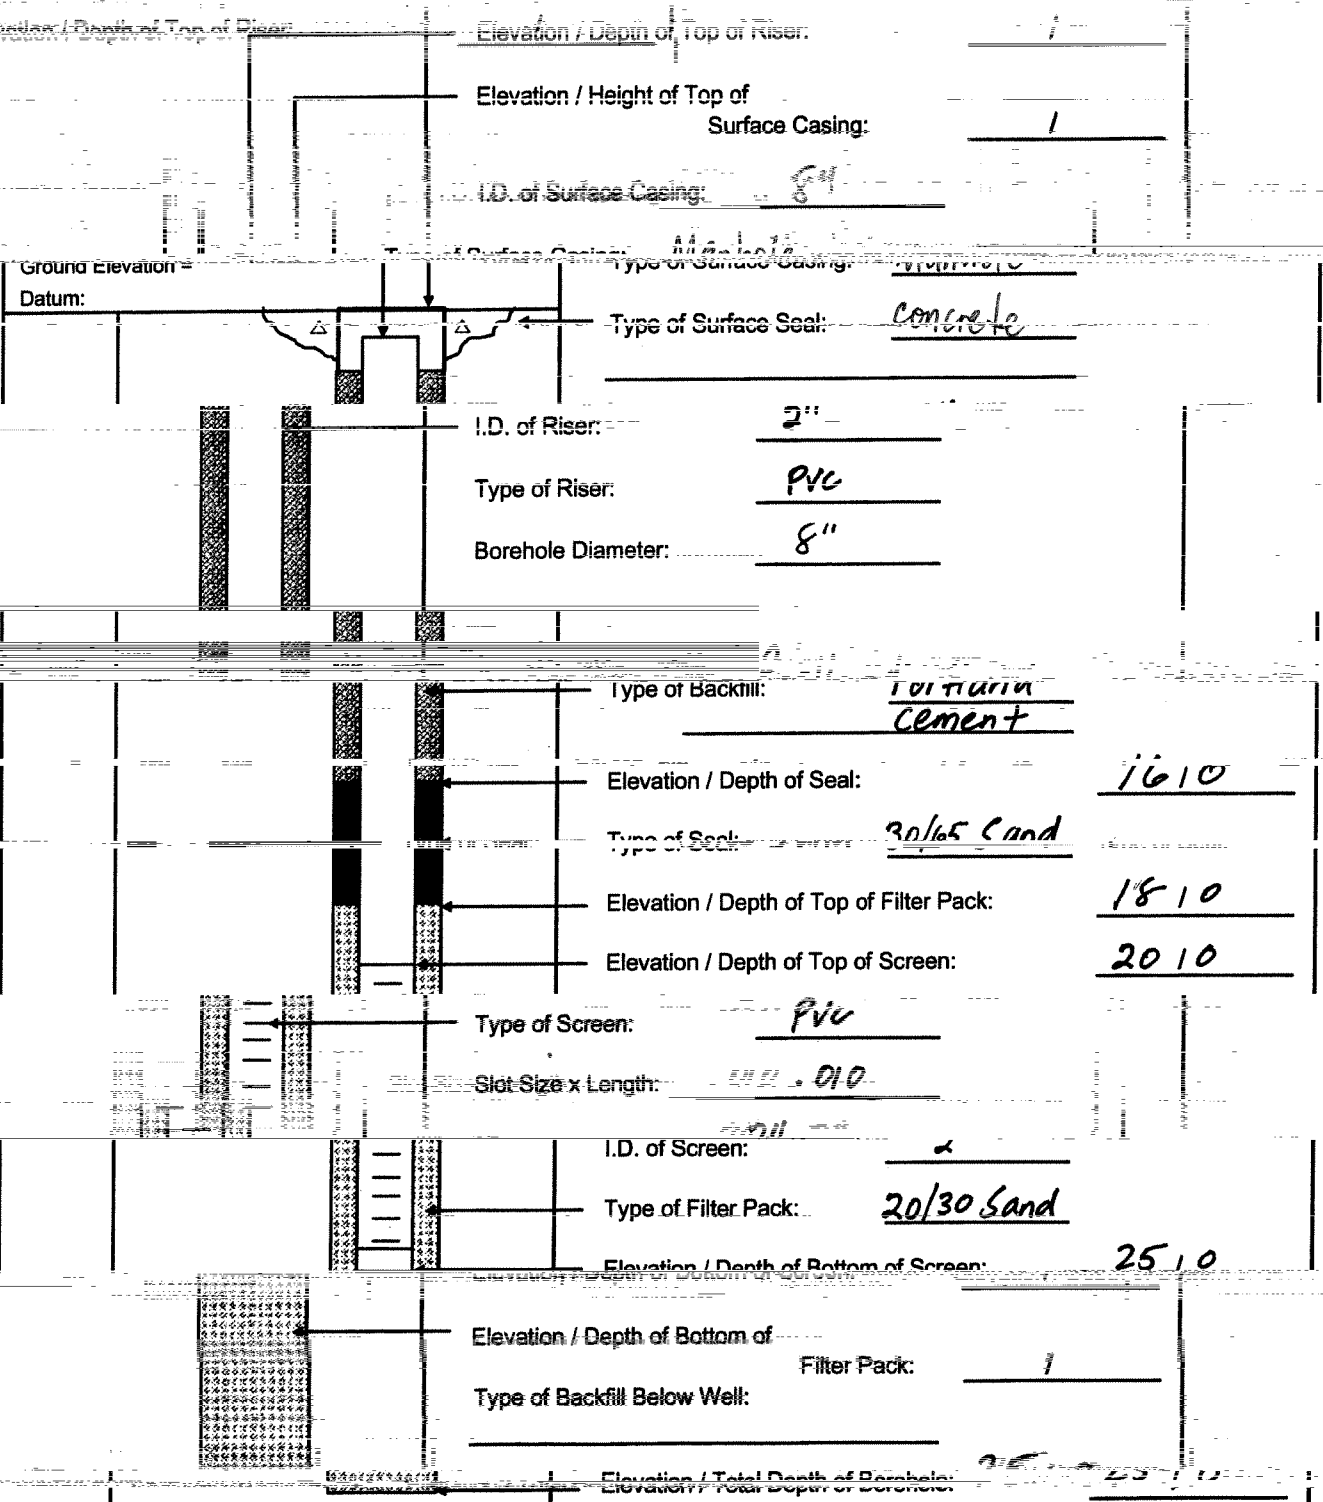 Elevation / Depth of Top of Riser: Elevation / Depth of Top of Riser: /
Elevation / Height of Top of
Surface Casing: /
I.D. of Surface Casing: 8"
Type of Surface Casing: Manhole
Ground Elevation =
Type of Surface Casing: Manhole
Datum:
Type of Surface Seal: concrete
I.D. of Riser: 2"
Type of Riser: PVC
Borehole Diameter: 8"
Type of Backfill: Portland
Cement
Elevation / Depth of Seal: 16 / 0
Type of Seal: 30/65 Sand
Elevation / Depth of Top of Filter Pack: 18 / 0
Elevation / Depth of Top of Screen: 20 / 0
Type of Screen: PVC
Slot Size x Length: .010
I.D. of Screen: 2
Type of Filter Pack: 20/30 Sand
Elevation / Depth of Bottom of Screen: 25 / 0
Elevation / Depth of Bottom of Screen: /
Elevation / Depth of Bottom of
Filter Pack: /
Type of Backfill Below Well:
Elevation / Total Depth of Borehole: 25 / 0